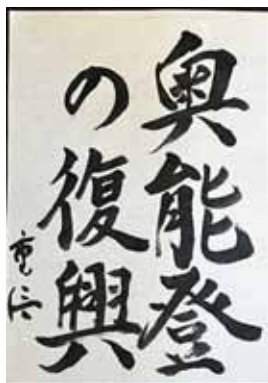 奥能登
の復興